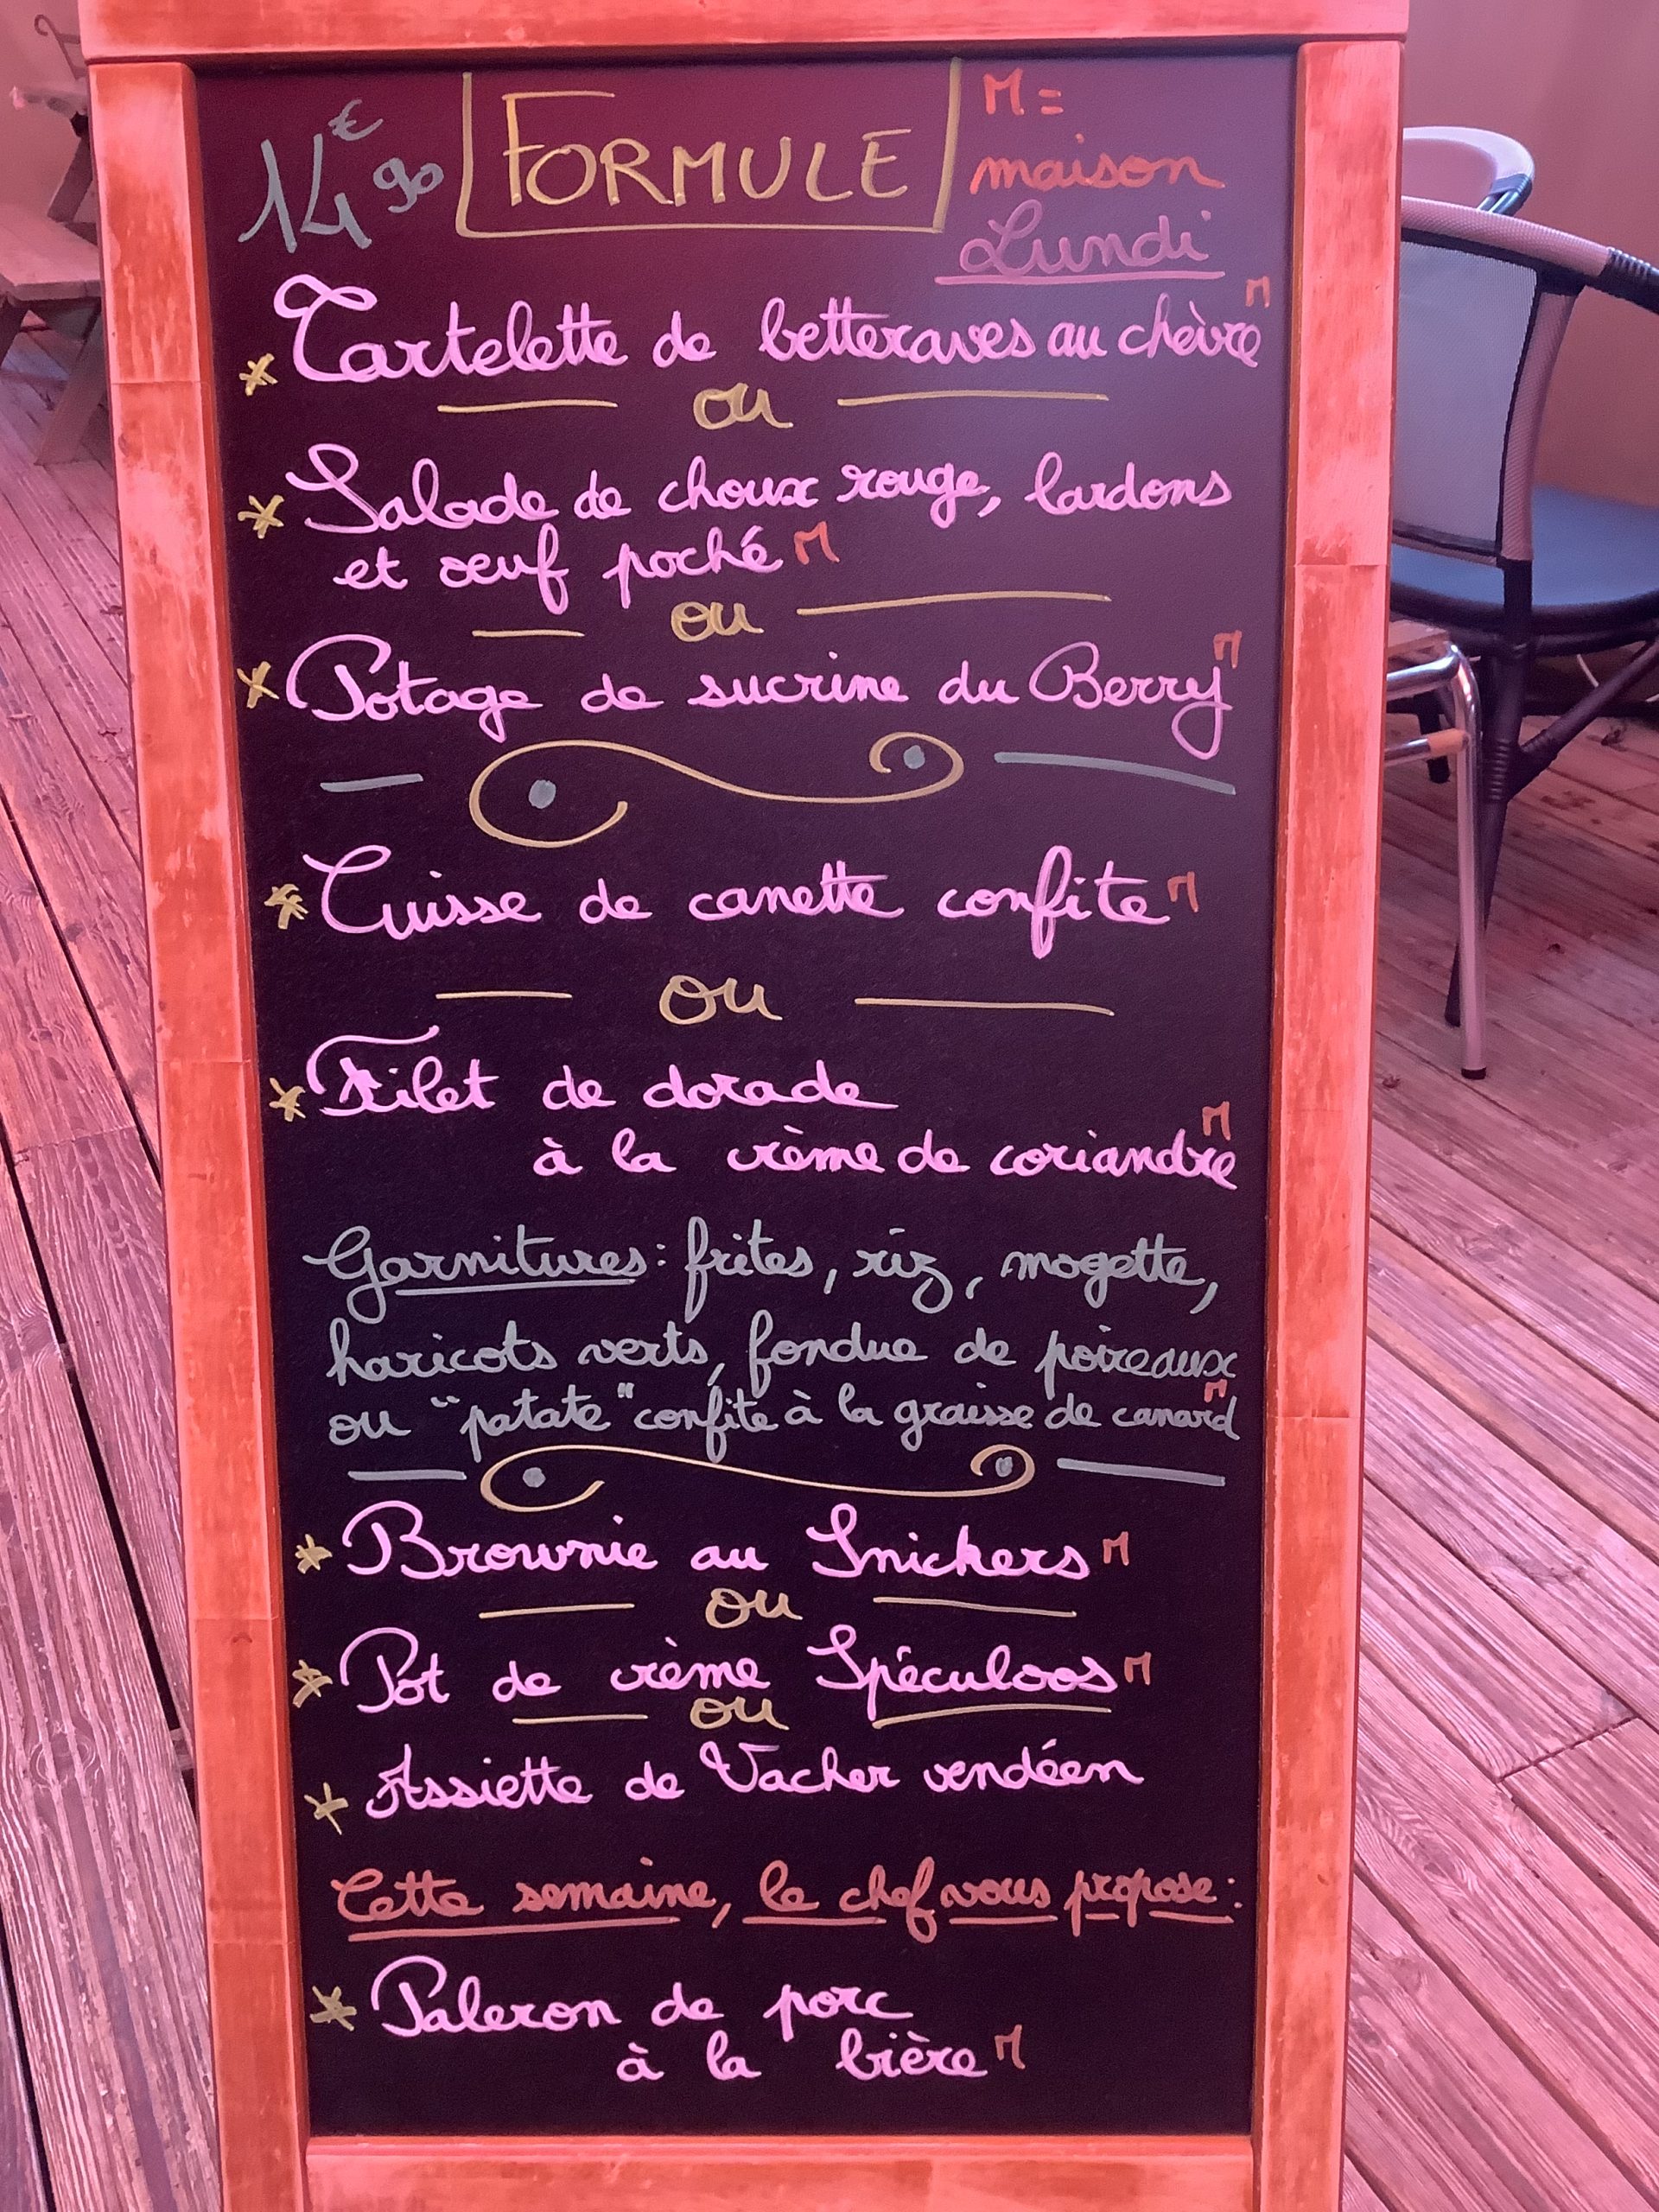 14€90 FORMULE M =
maison
Lundi
* Tartelette de betteraves au chèvre M
ou
* Salade de choux rouge, lardons
et oeuf poché M
ou
* Potage de sucrine du Berry M
* Cuisse de canette confite M
ou
* Filet de dorade
à la crème de coriandre M
Garnitures : frites, riz, mogette,
haricots verts, fondue de poireaux
ou "patate" confite à la graisse de canard M
* Brownie au Snickers M
ou
* Pot de crème Spéculoos M
ou
* Assiette de Vacher vendéen
Cette semaine, le chef vous propose :
* Paleron de porc
à la bière M